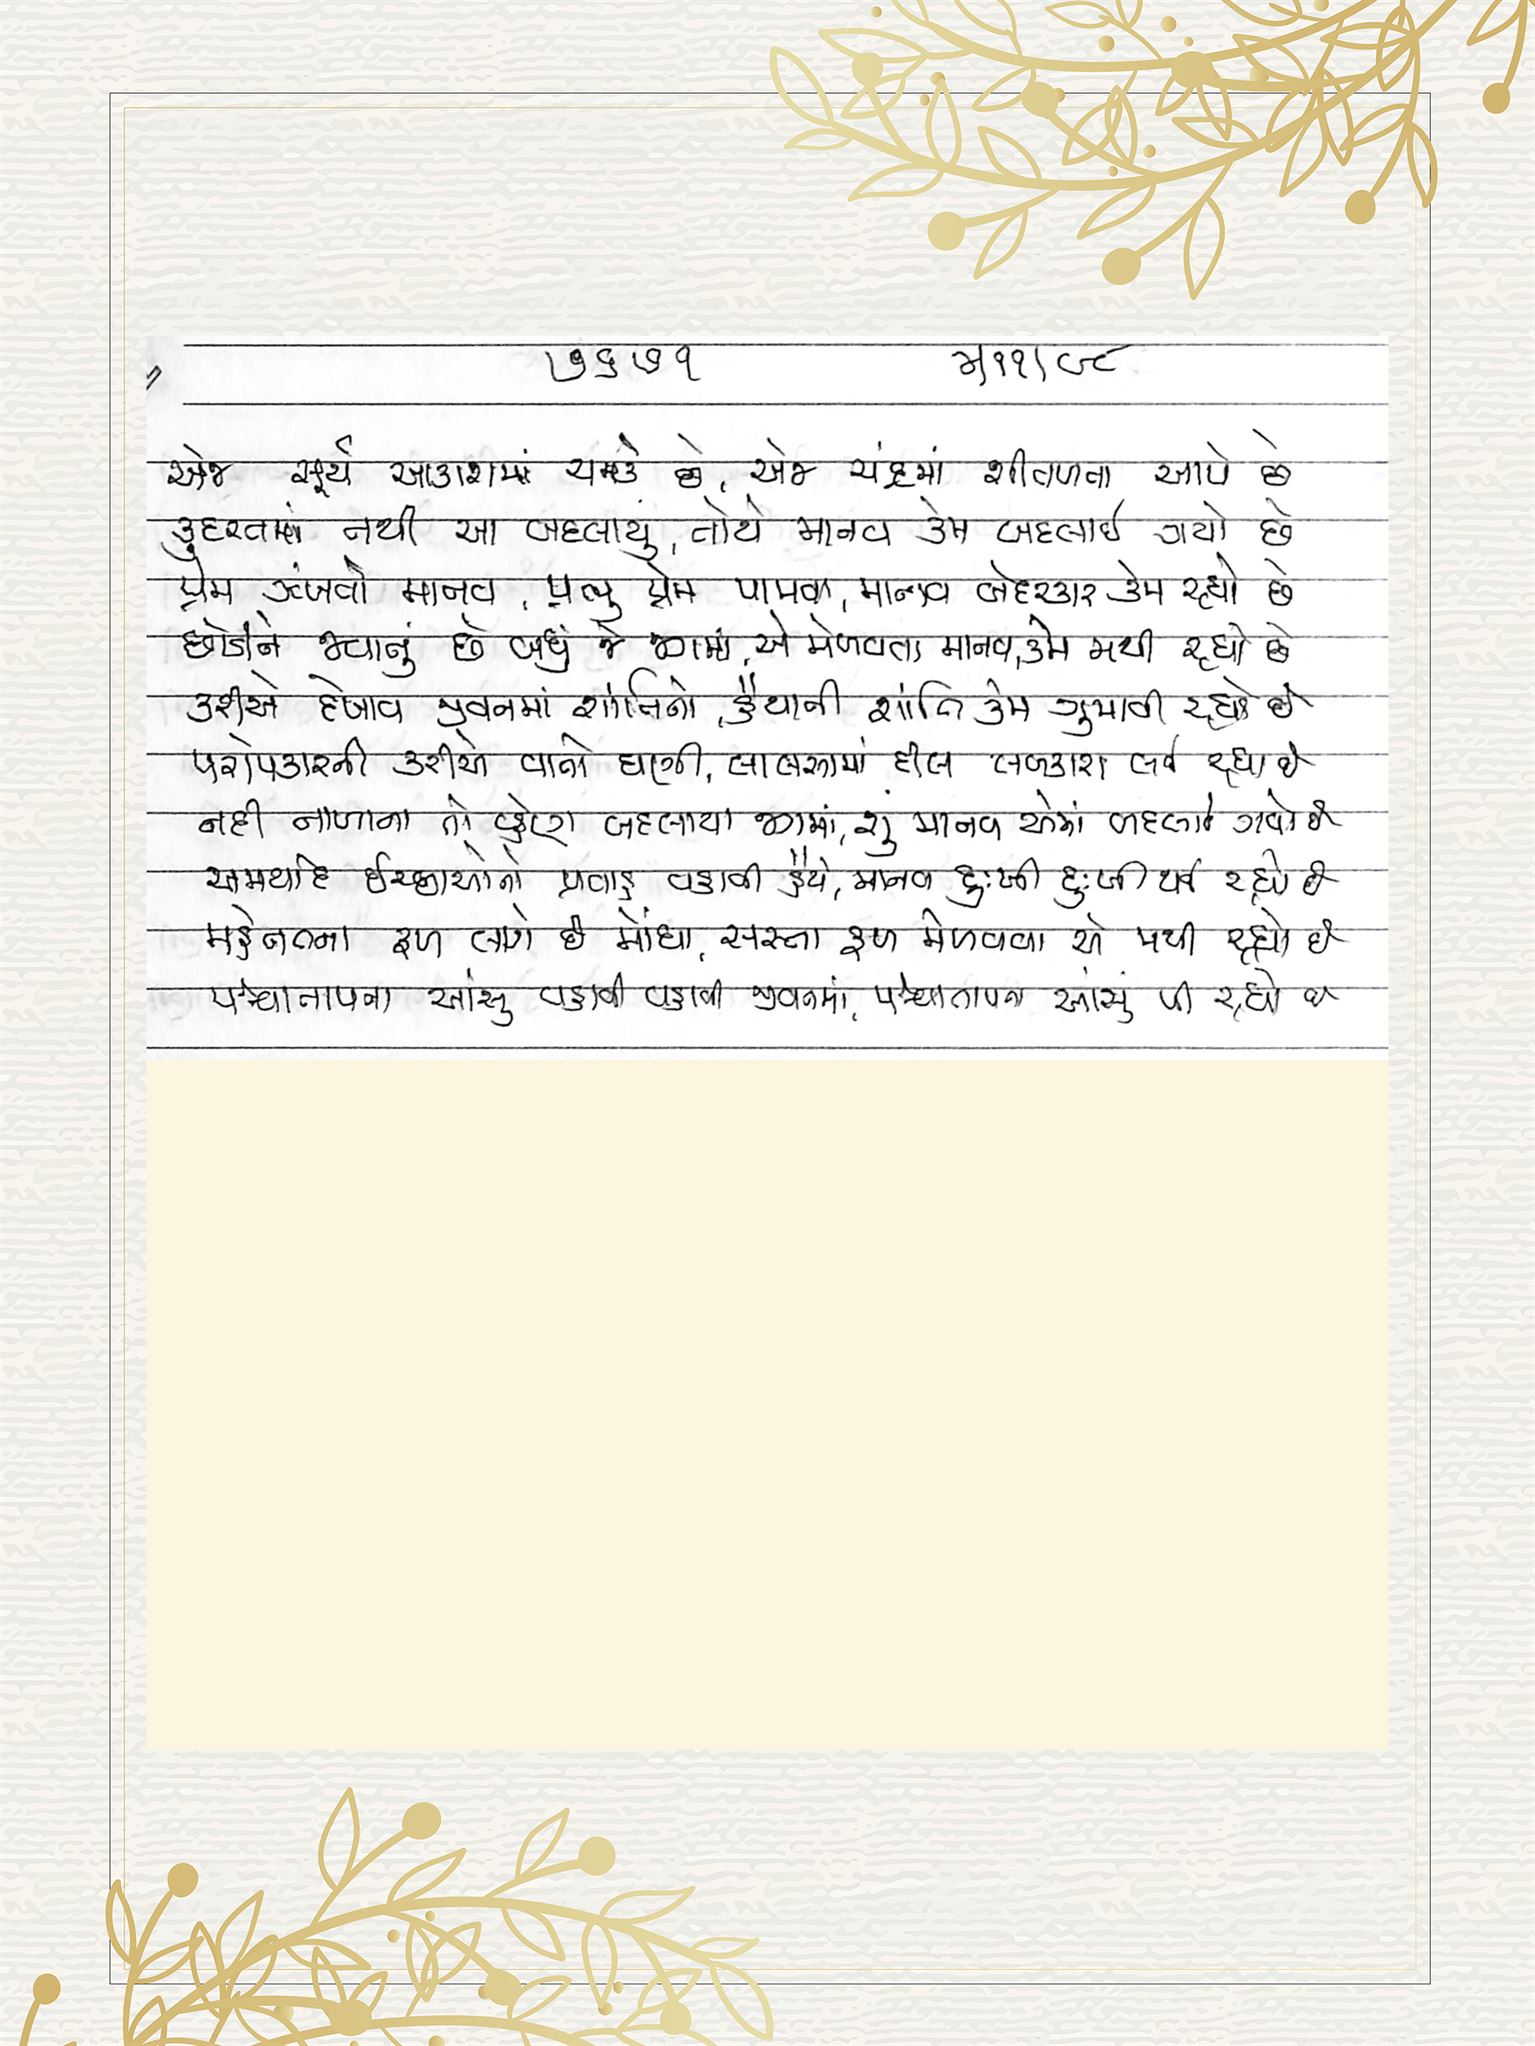 ૭૬૭૧
એજ સૂર્ય આકાશમાં ચમકે છે, એજ ચંદ્રમાં શીતળતા આપે છે
કુદરતમાં નથી આ બદલાયું, તોયે માનવ કેમ બદલાઈ ગયો છે
પ્રેમ ઝંખતો માનવ, પ્રભુ પ્રેમ પામવા, માનવ બેદરકાર કેમ રહ્યો છે
છોડીને જવાનું છે બધું જે જગમાં, એ મેળવવા માનવ, કેમ મથી રહ્યો છે
કરીએ દેખાવ જીવનમાં શાંતિનો, હૈયાની શાંતિ કેમ ગુમાવી રહ્યો છે
પરોપકારની કરીએ વાતો ઘણી, લાલસામાં દીલ લપકારા લઈ રહ્યા છે
નહી નાણાના તો બદલાયા જગમાં, શું માનવ એમાં બદલાઈ ગયો છે
અમર્યાદિ ઈચ્છાઓનો પ્રવાહ વહાવી હૈયે, માનવ દુઃખી દુઃખી થઈ રહ્યો છે
મહેનતના ફળ લાગે છે મોંઘા, સસ્તા ફળ મેળવવા એ મથી રહ્યો છે
પશ્ચાતાપના આંસુ વહાવી વહાવી જીવનમાં, પશ્ચાતાપના આંસું પી રહ્યો છે